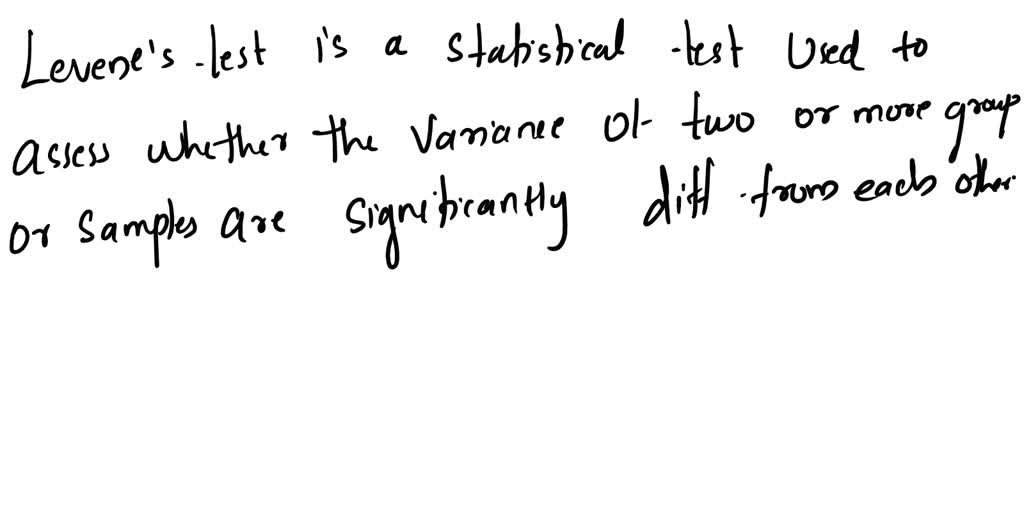 Levene's test is a statistical test used to
assess whether the variance of two or more group
or samples are significantly diff from each other.